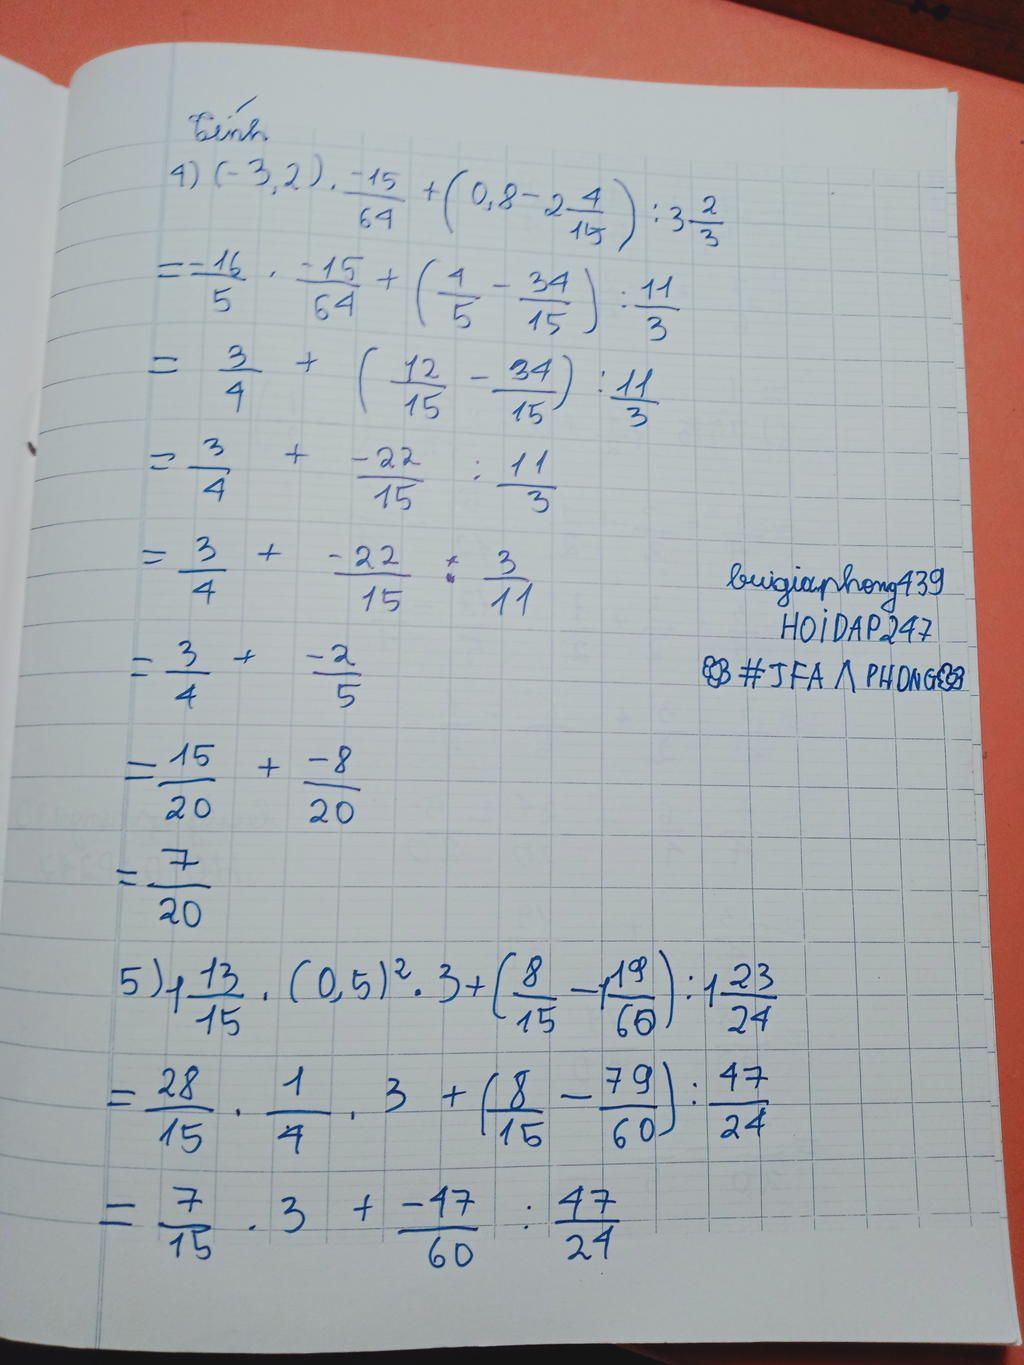 Tính
4) (-3,2) . \frac{-15}{64} + (0,8 - 2\frac{4}{15}) : 3\frac{2}{3}
= \frac{-16}{5} . \frac{-15}{64} + (\frac{4}{5} - \frac{34}{15}) : \frac{11}{3}
= \frac{3}{4} + (\frac{12}{15} - \frac{34}{15}) : \frac{11}{3}
= \frac{3}{4} + \frac{-22}{15} : \frac{11}{3}
= \frac{3}{4} + \frac{-22}{15} : \frac{3}{11}
= \frac{3}{4} + \frac{-2}{5}
= \frac{15}{20} + \frac{-8}{20}
= \frac{7}{20}
buigiaphong439
HOIDAP247
#JFA Λ PHONG
5) 1\frac{13}{15} . (0,5)² . 3 + (\frac{8}{15} - 1\frac{19}{60}) : 1\frac{23}{24}
= \frac{28}{15} . \frac{1}{4} . 3 + (\frac{8}{15} - \frac{79}{60}) : \frac{47}{24}
= \frac{7}{15} . 3 + \frac{-47}{60} : \frac{47}{24}